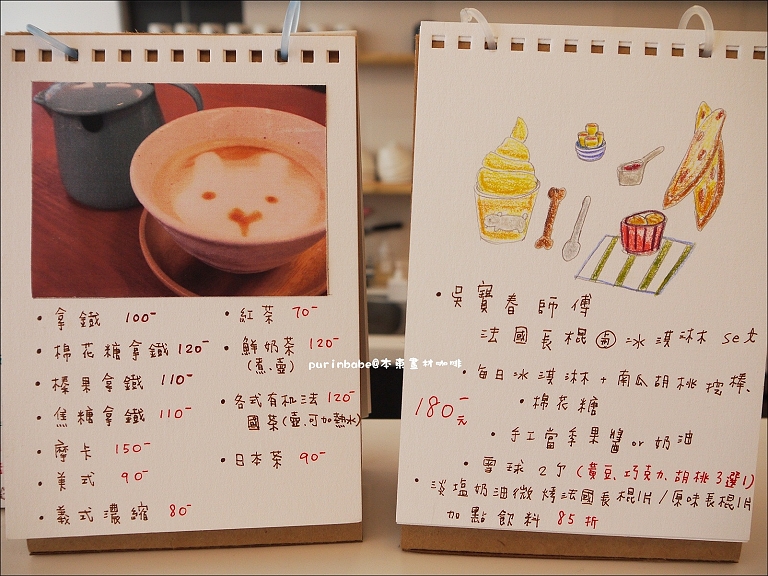 拿鐵 100-
棉花糖拿鐵 120-
榛果拿鐵 110-
焦糖拿鐵 110-
摩卡 150-
美式 90-
義式濃縮 80-
紅茶 70-
鮮奶茶 120-
(煮.壺)
各式有机法 120-
國茶(壺.可加熱水)
日本茶 90-
purinbabe@本東畫材咖啡
吳寶春師傅
法國長棍 冰淇淋 set
每日冰淇淋+南瓜胡桃挖棒.
棉花糖
180-元
手工當季果醬or奶油
雪球2个(黃豆.巧克力.胡桃3選1)
淡塩奶油微烤法國長棍1片/原味長棍1片
加點飲料 85折